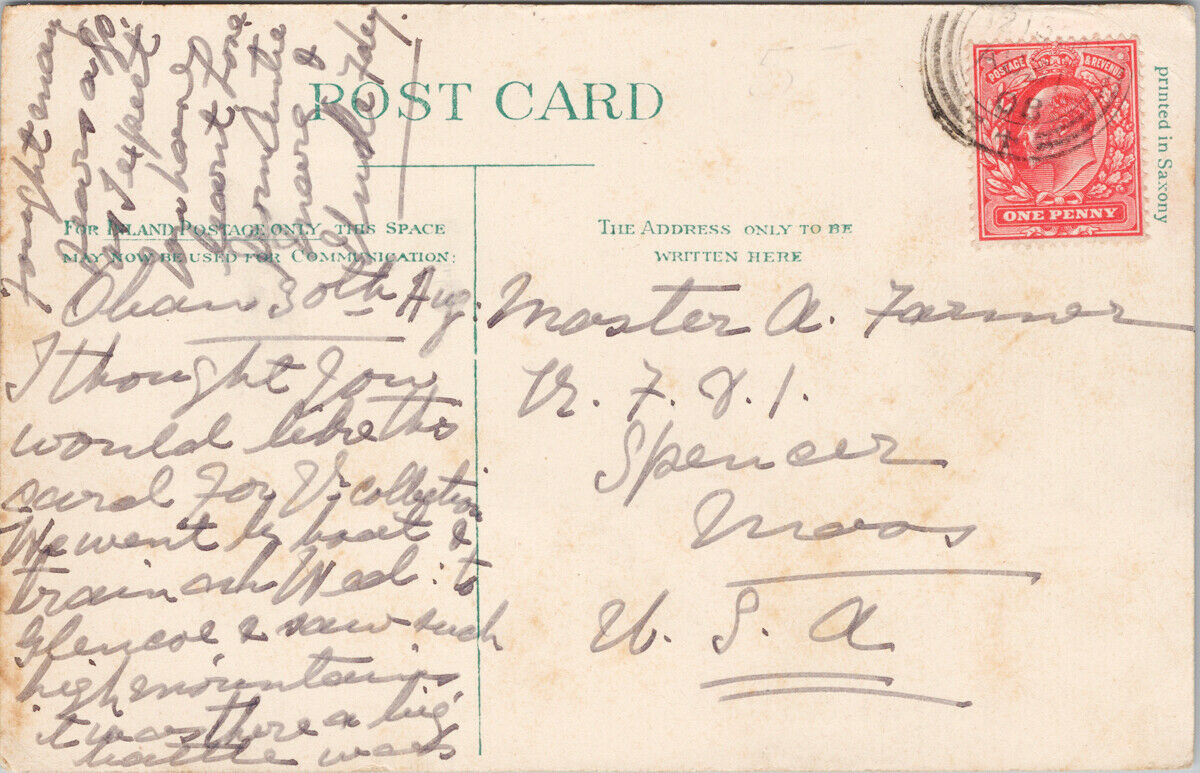 POST CARD
FOR INLAND POSTAGE ONLY THIS SPACE
MAY NOW BE USED FOR COMMUNICATION:
THE ADDRESS ONLY TO BE
WRITTEN HERE
POSTAGE & REVENUE
ONE PENNY
printed in Saxony
Oban 30th Aug.
I thought you
would like this
card for Yr collection
We went by boat &
train on Wed: to
Glencoe & saw such
high mountains
it was there a big
battle was
Fought many
years ago
I expect
you heard
Fond
love from Auntie
&
Master A. Farmer
R. F. D. 1.
Spencer
Mass
U. S. A